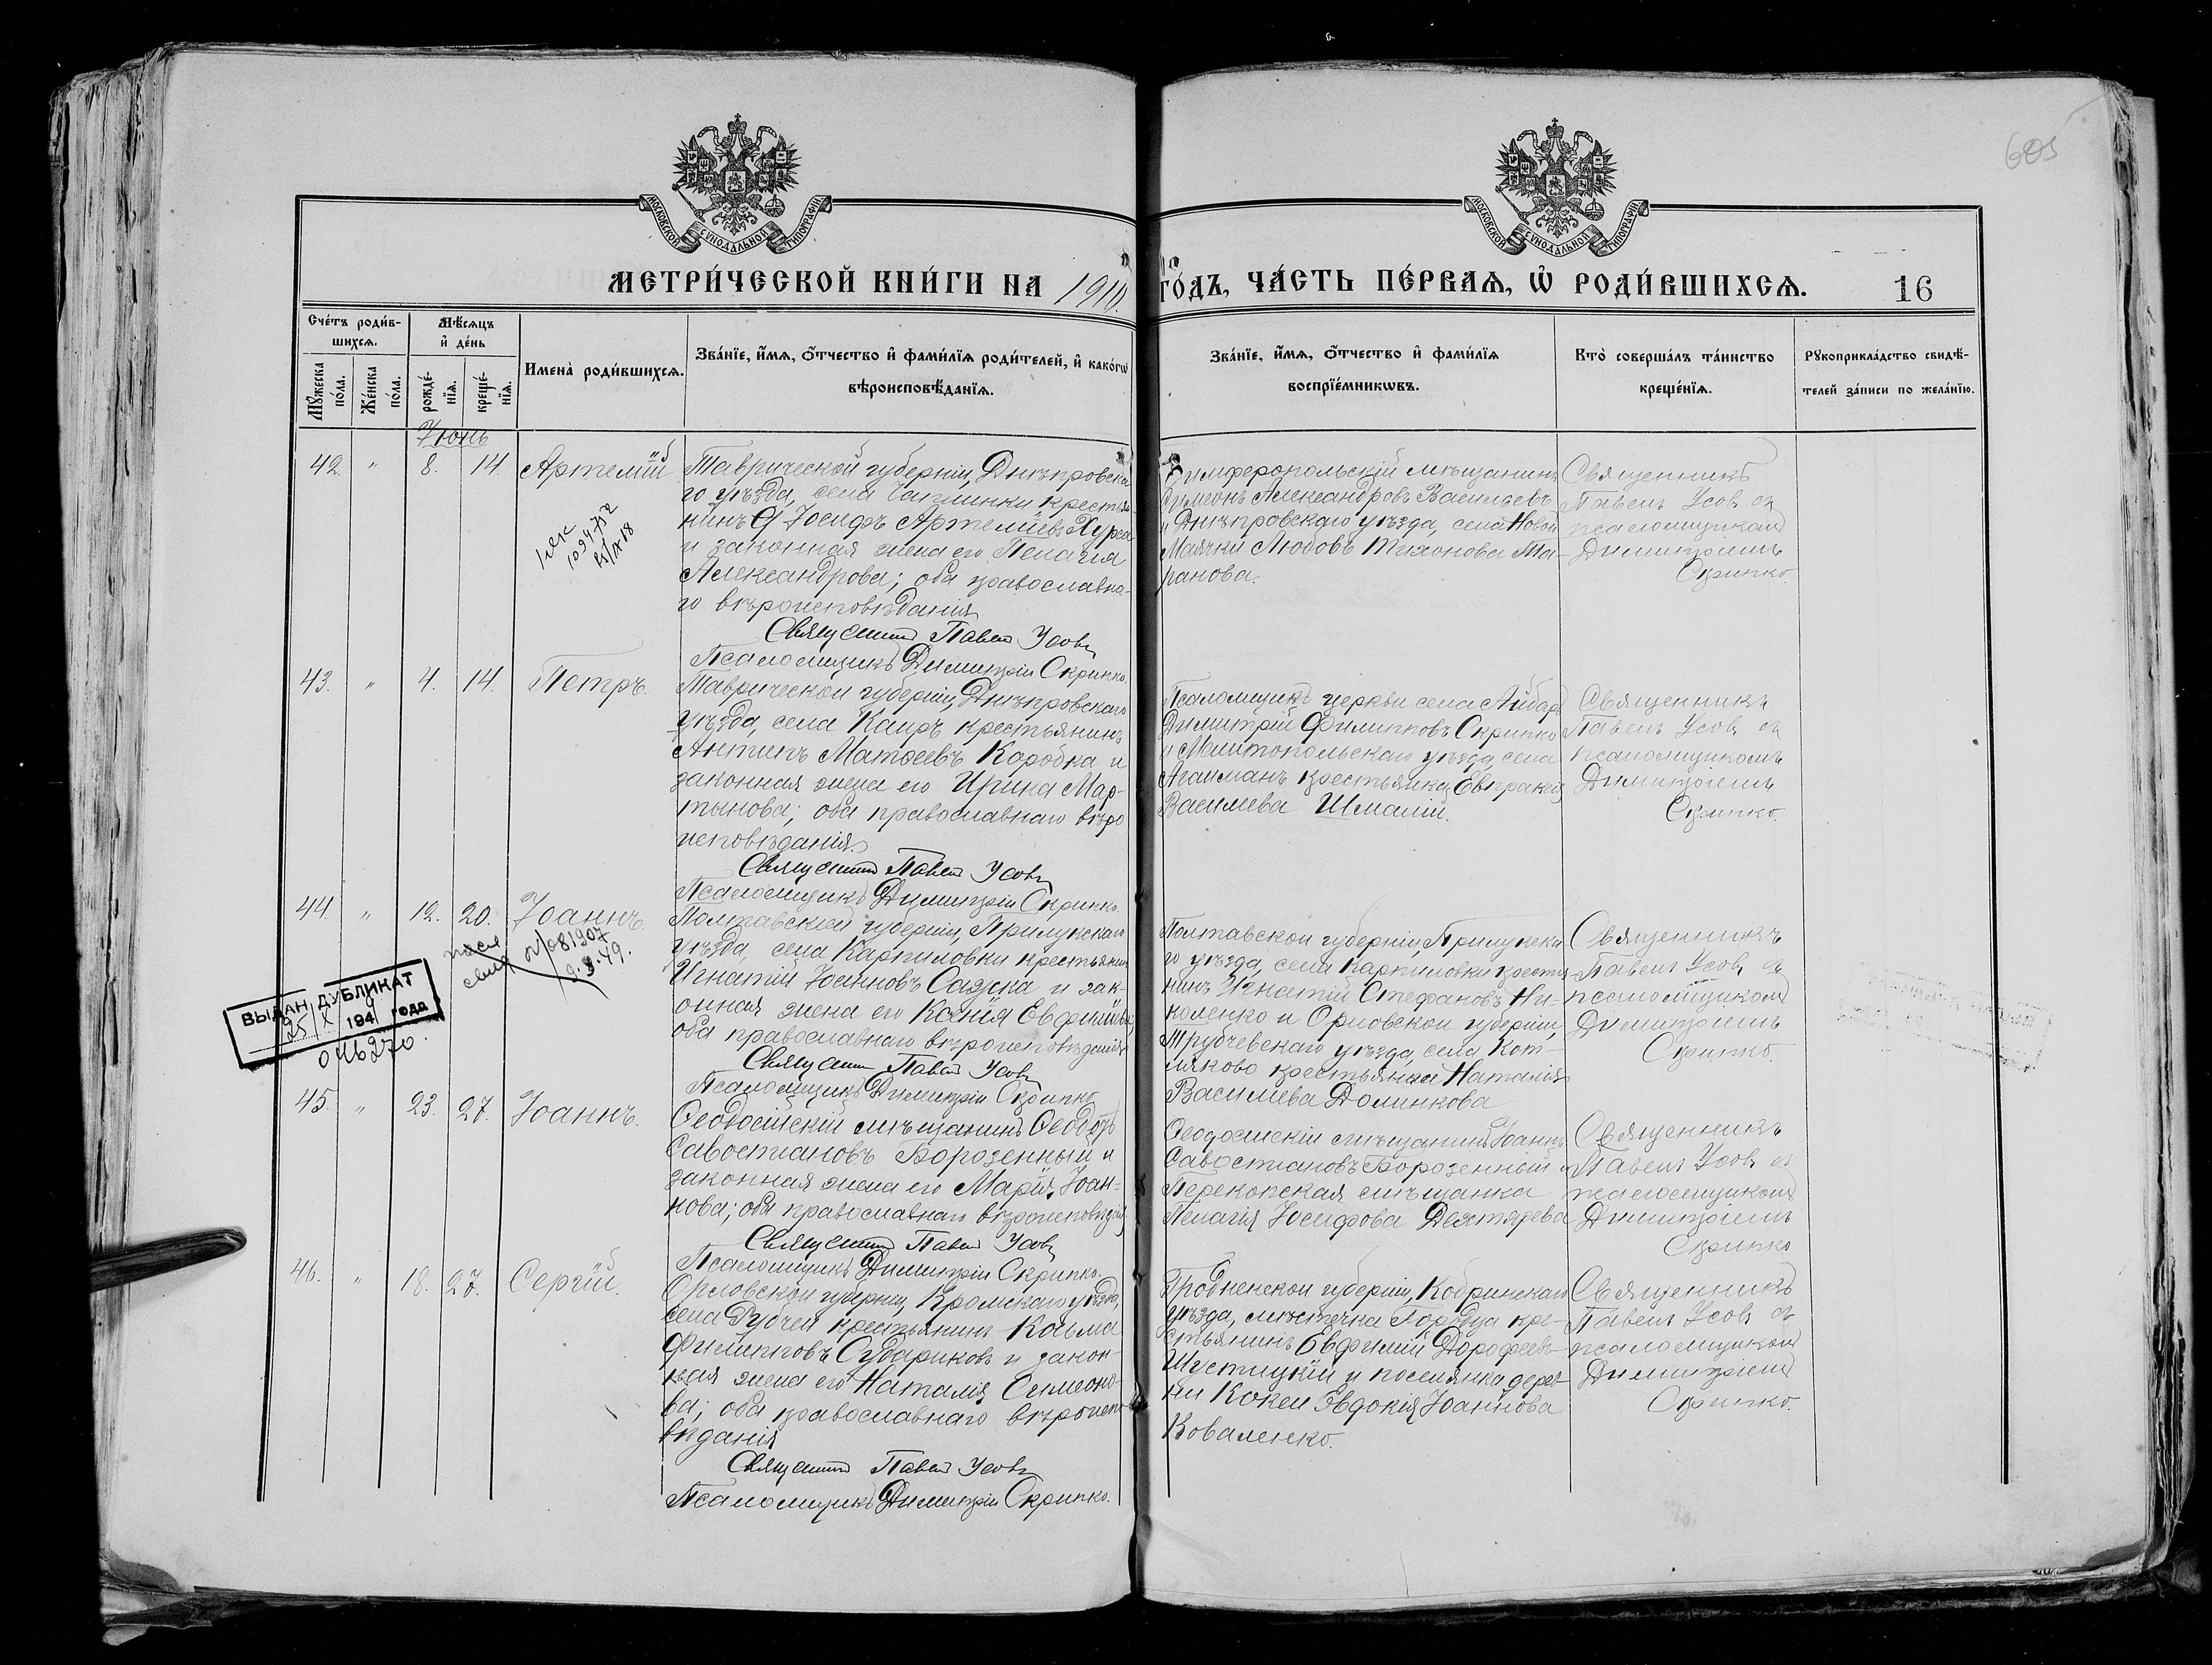 605
МОСКОВСКОЙ СѴНОДАЛЬНОЙ ТИПОГРАФІИ
МОСКОВСКОЙ СѴНОДАЛЬНОЙ ТИПОГРАФІИ
МЕТРИ́ЧЕСКОЙ КНИ́ГИ НА 1910
ГО́ДЪ, ЧА́СТЬ ПЕ́РВАѦ, Ѡ҆ РОДИ́ВШИХСѦ. 16
Сче́тъ роди́в-
шихсѧ.
Мꙋ́жеска по́ла.
Же́нска по́ла.
Мѣ́сѧцъ
и҆ де́нь
рожде́-
нїѧ.
креще́-
нїѧ.
Имена̀ роди́вшихсѧ.
Зва́нїе, и҆́мѧ, ѻ҆́тчество и҆ фами́лїѧ роди́телей, и҆ како́гѡ
вѣроисповѣ́данїѧ.
Зва́нїе, и҆́мѧ, ѻ҆́тчество и҆ фами́лїѧ
воспрїе́мникѡвъ.
Кто̀ соверша́лъ та́инство
креще́нїѧ.
Рꙋкоприкла́дство свидѣ́-
телей за́писи по жела́нїю.
Іюнь
42. " 8. 14. Артемій
Таврической губерніи, Днѣпровска-
го уѣзда, села Чаплинки крестья-
нинъ Іосифъ Артеміевъ
и законная жена его Пелагія
Александрова; оба православна-
го вѣроисповѣданія
Священникъ Павелъ Усовъ
Псаломщикъ Димитрій Скрипко.
Симферопольскій мѣщанинъ
Симеонъ Александровъ Васильевъ
и Днѣпровскаго уѣзда, села Новой
Маячки Любовь Тихонова Та-
ранова.
Священникъ
Павелъ Усовъ съ
псаломщикомъ
Димитріемъ
Скрипко.
43. " 4. 14. Петръ.
Таврической губерніи, Днѣпровскаго
уѣзда, села Каиръ крестьянинъ
Антипъ Матѳеевъ Коробка и
законная жена его Ирина Мар-
тынова; оба православнаго вѣро
исповѣданія.
Священникъ Павелъ Усовъ
Псаломщикъ Димитрій Скрипко.
Псаломщикъ церкви села Айбаръ
Димитрій Филипповъ Скрипко
и Мелитопольскаго уѣзда, села
Агайманъ крестьянка Евпраксія
Василіева Шмалій.
Священникъ
Павелъ Усовъ съ
псаломщикомъ
Димитріемъ
Скрипко.
44. " 12. 20. Іоаннъ.
081907
9.3.49.
ВЫДАН ДУБЛИКАТ
25/X 1941 года
046270.
Полтавской губерніи, Прилукскаго
уѣзда, села Карпиловки крестьянинъ
Игнатій Іоанновъ и зак-
онная жена его Ксенія Евфиміева;
оба православнаго вѣроисповѣданія
Священникъ Павелъ Усовъ
Псаломщикъ Димитрій Скрипко
Полтавской губерніи, Прилукска-
го уѣзда, села Карпиловки крестья-
нинъ Игнатій Стефановъ Ни-
коленко и Орловской губерніи,
Трубчевскаго уѣзда, села Кот-
ляково крестьянка Наталія
Василіева Долинкова
Священникъ
Павелъ Усовъ съ
псаломщикомъ
Димитріемъ
Скрипко.
45. " 23. 27. Іоаннъ.
Ѳеодосійскій мѣщанинъ Ѳеодоръ
Савостіановъ Борозенный и
законная жена его Марія Іоан-
нова; оба православнаго вѣроисповѣданія
Священникъ Павелъ Усовъ
Псаломщикъ Димитрій Скрипко.
Ѳеодосійскій мѣщанинъ Іоаннъ
Савостіановъ Борозенный и
Перекопская мѣщанка
Пелагія Іосифова Дехтярева
Священникъ
Павелъ Усовъ съ
псаломщикомъ
Димитріемъ
Скрипко
46. " 18. 27. Сергій.
Орловской губерніи, Кромскаго уѣзда,
села крестьянинъ Косьма
Филипповъ Судариковъ и закон-
ная жена его Наталія Симеоно-
ва; оба православнаго вѣроиспо
вѣданія
Священникъ Павелъ Усовъ
Псаломщикъ Димитрій Скрипко.
Гродненской губерніи, Кобринскаго
уѣзда, мѣстечка Городца кре-
стьянинъ Евфимій Дороѳеевъ
Шустицкій и поселянка дерев-
ни Кокеи Евдокія Іоаннова
Коваленко.
Священникъ
Павелъ Усовъ съ
псаломщикомъ
Димитріемъ
Скрипко.